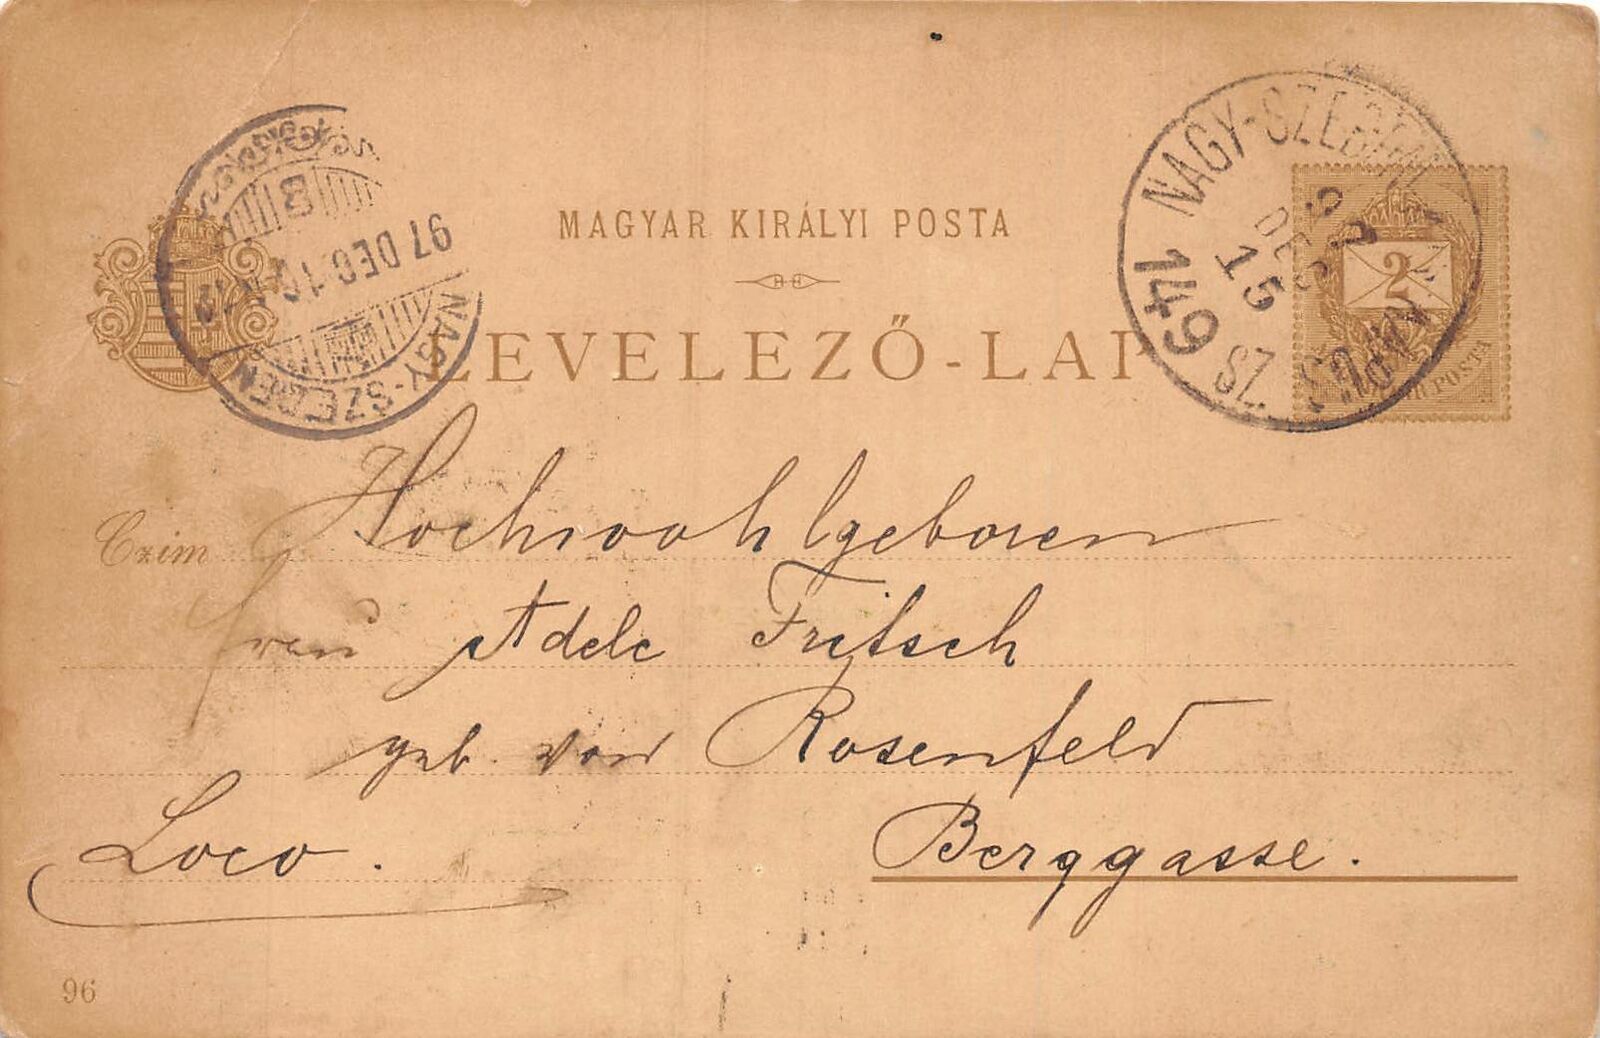 MAGYAR KIRÁLYI POSTA
LEVELEZŐ-LAP
NAGY-SZEBEN
97 DEC 15
149 SZ.
2
NAGY-SZEBEN
97 DEC. 16
Czim
Hochwohlgeboren
Frau Adele Fritsch
geb. von Rosenfeld
Loco.
Berggasse.
96